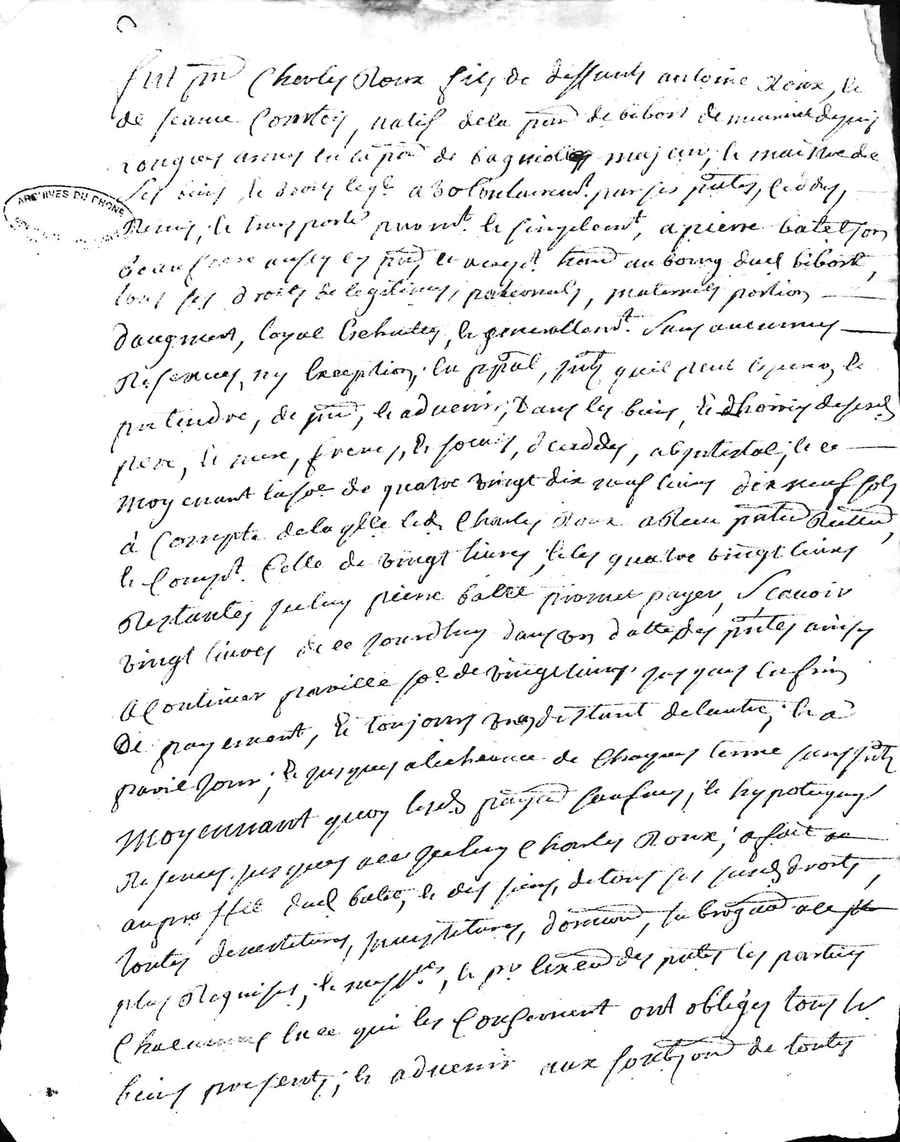 ARCHIVES DU RHONE
fut pnt Charles Roux fils de deffunts antoine Roux, et
de jeanne Comtes, natif de la par de bibost demeurant depuis
longues années en la par de majeur, et maistre de
ses biens et droits leql a volontairement par ses pntes, ceddé,
Remis, et transporté puremt et simplemt, a pierre batet son
beaufrere aussy cy pnt, et accept habt au bourg dud bibost,
tous ses droits de legitimes, paternels, maternels portion
daugment, loyal Escheuttes, et generallemt Sans aucunes
Reserves, ny Exception, en ppal, qu'il peut et
pretendre, de pnt, et advenir, dans les biens, et hoiries desesd
pere, et mere, freres, et soeurs, deceddés, abintestat; et ce
moyenant la so.e de quatre vingt dix neuf livres dix neuf sols
à Compte de laqlle led Charles Roux a Reçu
et Compt Celle de vingt livres, et les quatre vingt livres
Restantes iceluy pierre batet promet payer, Scavoir
vingt livres de ce jourdhuy dans un datte des pntes ainsy
a Continuer pareille so.e de vingt livres, jusques enfin
de payement, et toujours un an distant de lautre, et a
pareil jour; et jusques a lecheance de Chaque terme sans
moyennant quoy lesd et hypoteques
Reservés jusques a ce iceluy Charles Roux; a fait
au proffit dud batet, et des siens, de tous ses susd droits,
toutes devestitures, investitures, subrogaon
plus Requises, et et les parties
Chacunes en ce qui les Concernent ont obligés tous les
biens presents, et advenir aux de toutes